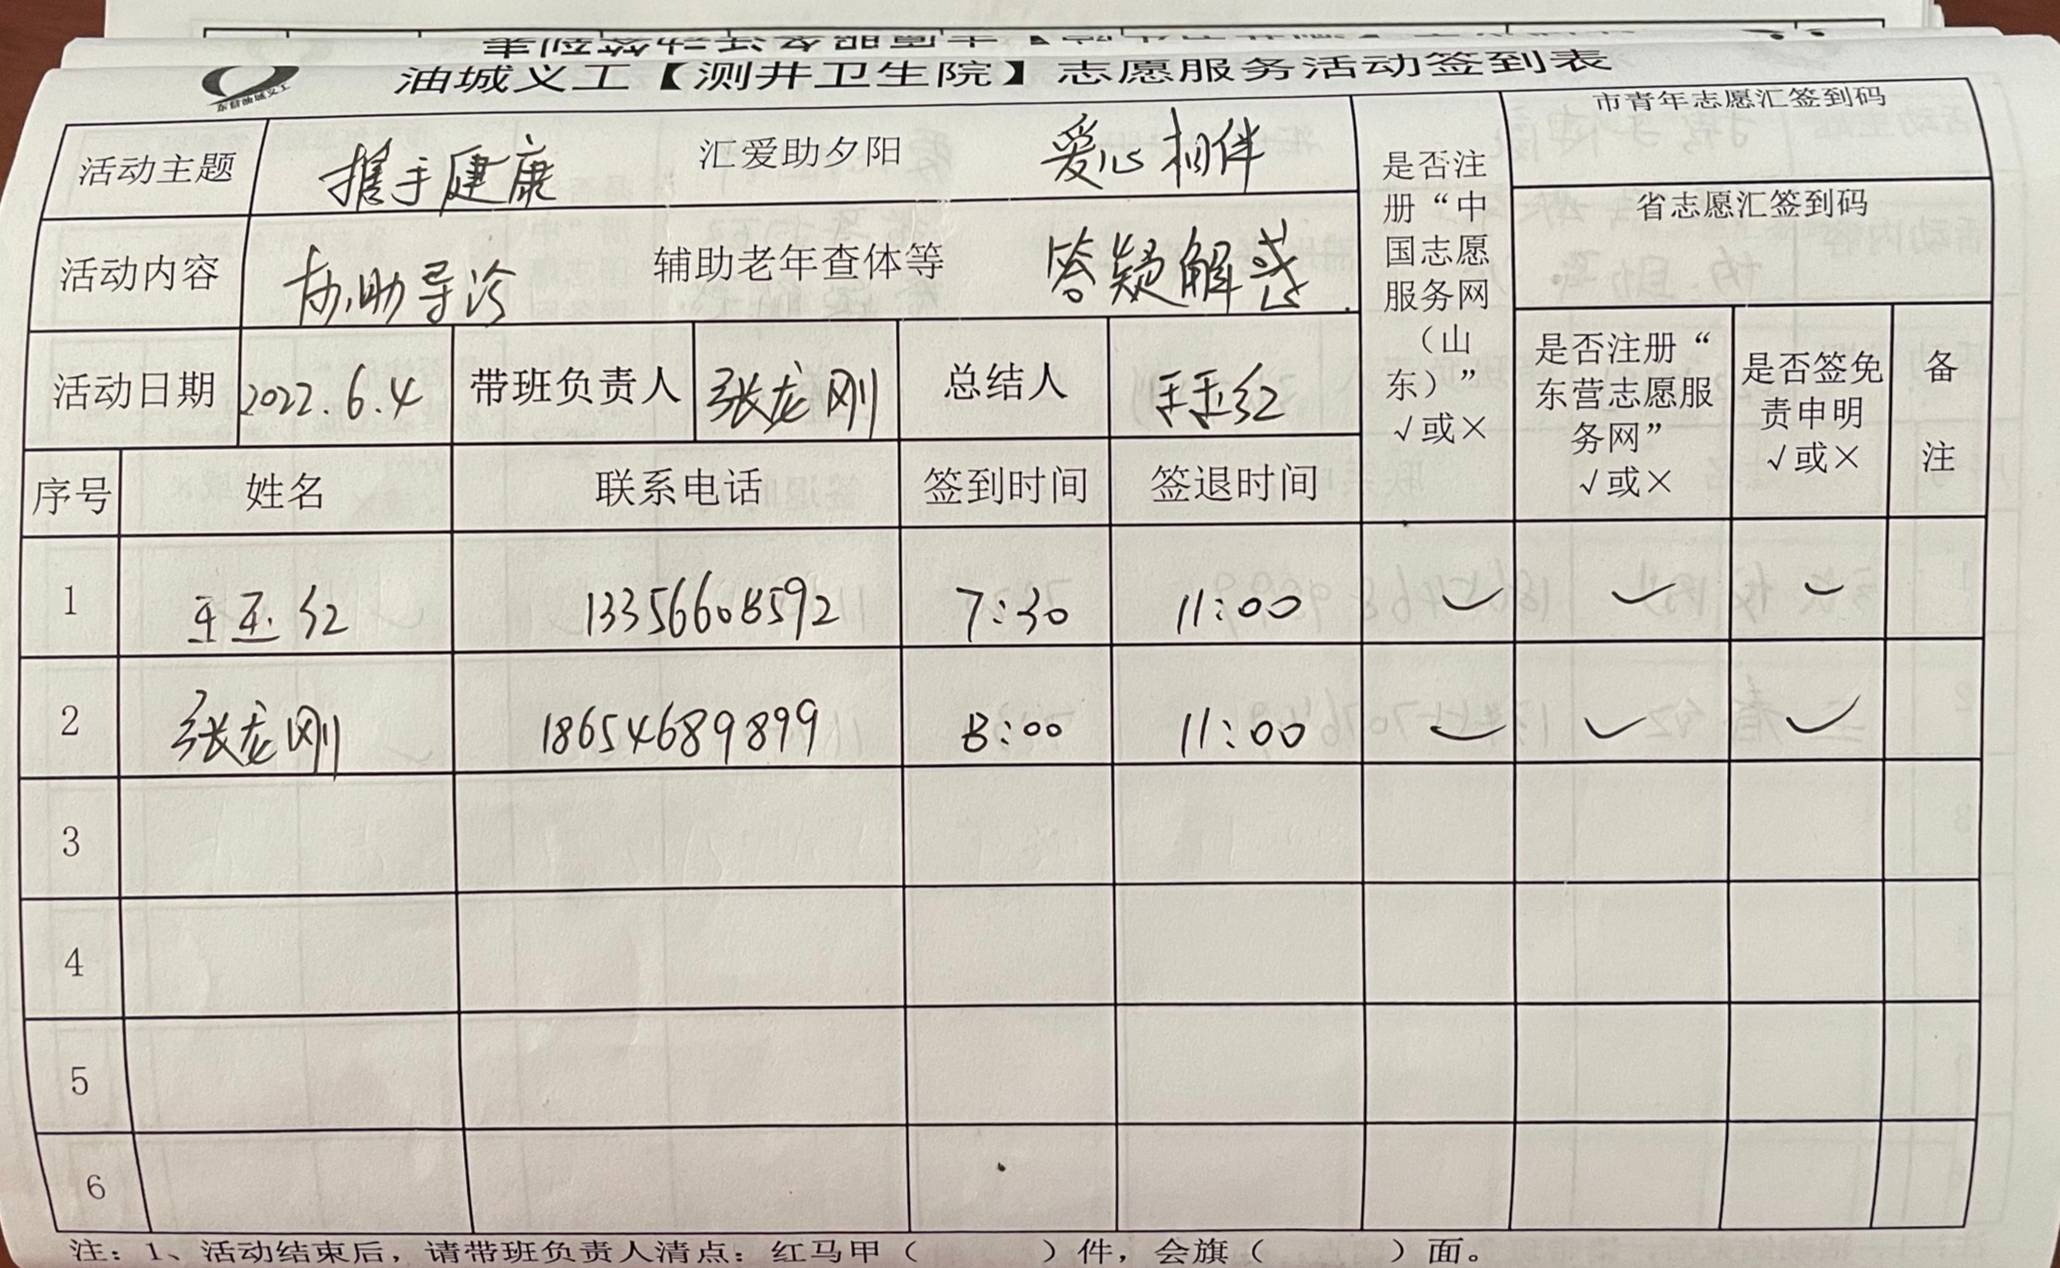 东营油城义工
油城义工【测井卫生院】志愿服务活动签到表
活动主题 携手健康 汇爱助夕阳 爱心相伴
活动内容 协助导诊 辅助老年查体等 答疑解惑.
活动日期 2022.6.4 带班负责人 张龙刚 总结人 王玉红
是否注册“中国志愿服务网（山东）”√或×
市青年志愿汇签到码
省志愿汇签到码
是否注册“东营志愿服务网”√或×
是否签免责申明√或×
备注
序号 姓名 联系电话 签到时间 签退时间
1 王玉红 13356608592 7:30 11:00 ✓ ✓ ✓
2 张龙刚 18654689899 8:00 11:00 ✓ ✓ ✓
3
4
5
6
注：1、活动结束后，请带班负责人清点：红马甲（ ）件，会旗（ ）面。